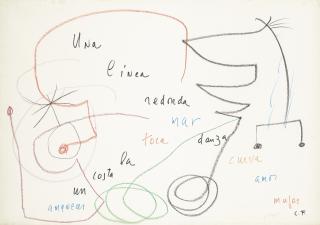 una
línea
redonda
mar
toca danza
la
costa
un
curva
amanecer
amor
C.P.